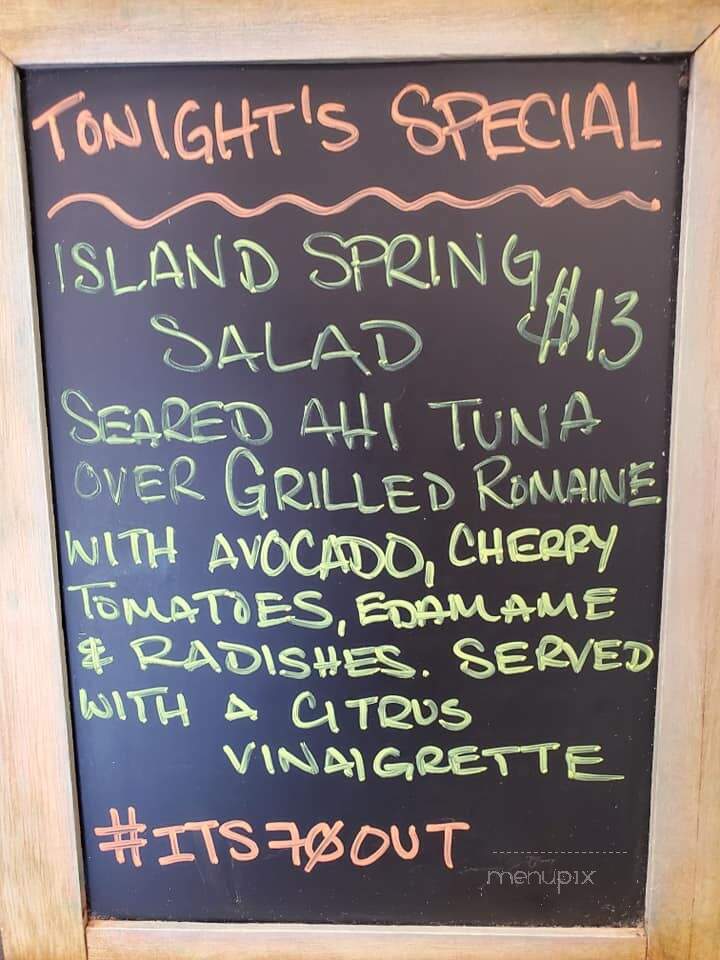 TONIGHT'S SPECIAL
ISLAND SPRING
SALAD $13
SEARED AHI TUNA
OVER GRILLED ROMAINE
WITH AVOCADO, CHERRY
TOMATOES, EDAMAME
& RADISHES. SERVED
WITH A CITRUS
VINAIGRETTE
#ITS70OUT
menupix